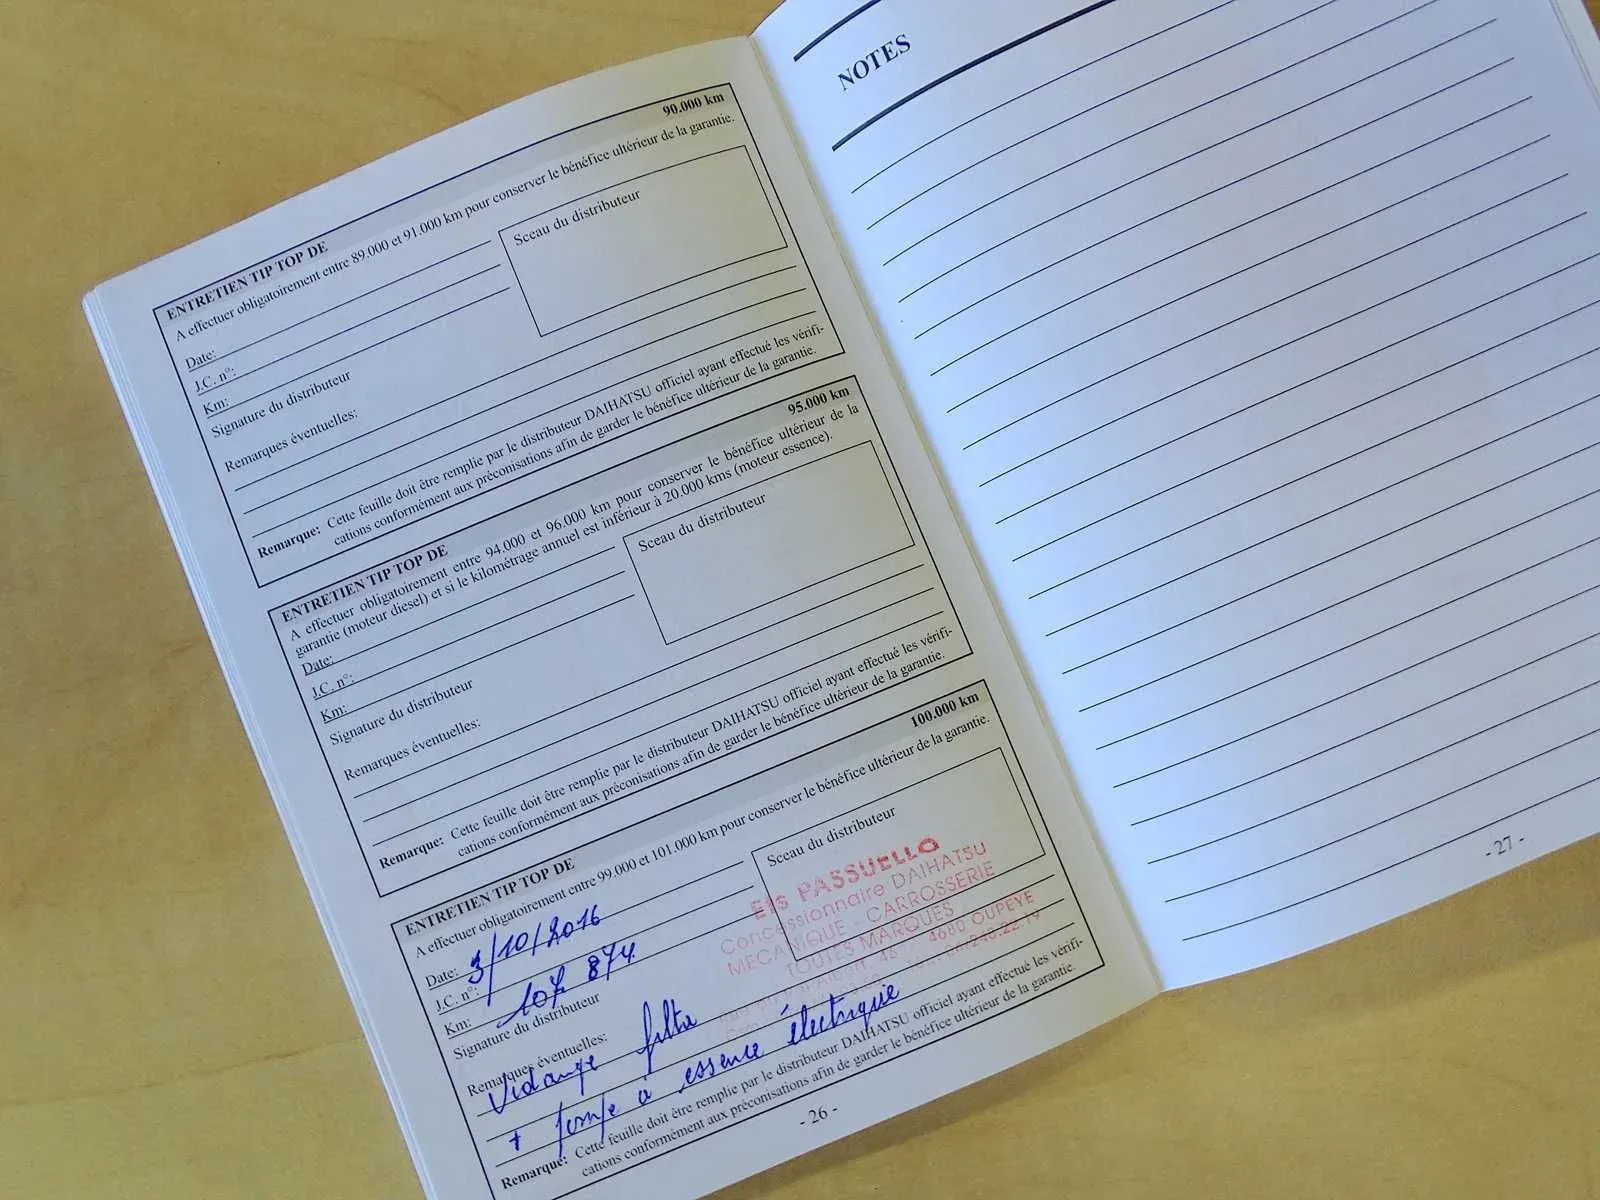 ENTRETIEN TIP TOP DE 90.000 km
A effectuer obligatoirement entre 89.000 et 91.000 km pour conserver le bénéfice ultérieur de la garantie.
Sceau du distributeur
Date:
J.C. n°:
Km:
Signature du distributeur
Remarques éventuelles:
Remarque: Cette feuille doit être remplie par le distributeur DAIHATSU officiel ayant effectué les vérifi-
cations conformément aux préconisations afin de garder le bénéfice ultérieur de la garantie.
ENTRETIEN TIP TOP DE 95.000 km
A effectuer obligatoirement entre 94.000 et 96.000 km pour conserver le bénéfice ultérieur de la
garantie (moteur diesel) et si le kilométrage annuel est inférieur à 20.000 kms (moteur essence).
Sceau du distributeur
Date:
J.C. n°:
Km:
Signature du distributeur
Remarques éventuelles:
Remarque: Cette feuille doit être remplie par le distributeur DAIHATSU officiel ayant effectué les vérifi-
cations conformément aux préconisations afin de garder le bénéfice ultérieur de la garantie.
ENTRETIEN TIP TOP DE 100.000 km
A effectuer obligatoirement entre 99.000 et 101.000 km pour conserver le bénéfice ultérieur de la garantie.
Sceau du distributeur
Ets PASSUELLO
Concessionnaire DAIHATSU
MECANIQUE - CARROSSERIE
TOUTES MARQUES
4680 OUPEYE
Date: 3/10/2016
J.C. n°:
Km: 107 874
Signature du distributeur
Remarques éventuelles:
Vidange filtre
+ pompe à essence électrique
Remarque: Cette feuille doit être remplie par le distributeur DAIHATSU officiel ayant effectué les vérifi-
cations conformément aux préconisations afin de garder le bénéfice ultérieur de la garantie.
- 26 -
NOTES
- 27 -